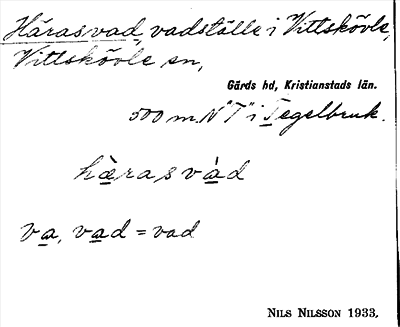 Härasvad, vadställe i Vittskövle,
Vittskövle sn,
Gärds hd, Kristianstads län.
500 m N "T" i Tegelbruk.
hæ̀rasvàd
va, vad = vad
NILS NILSSON 1933.